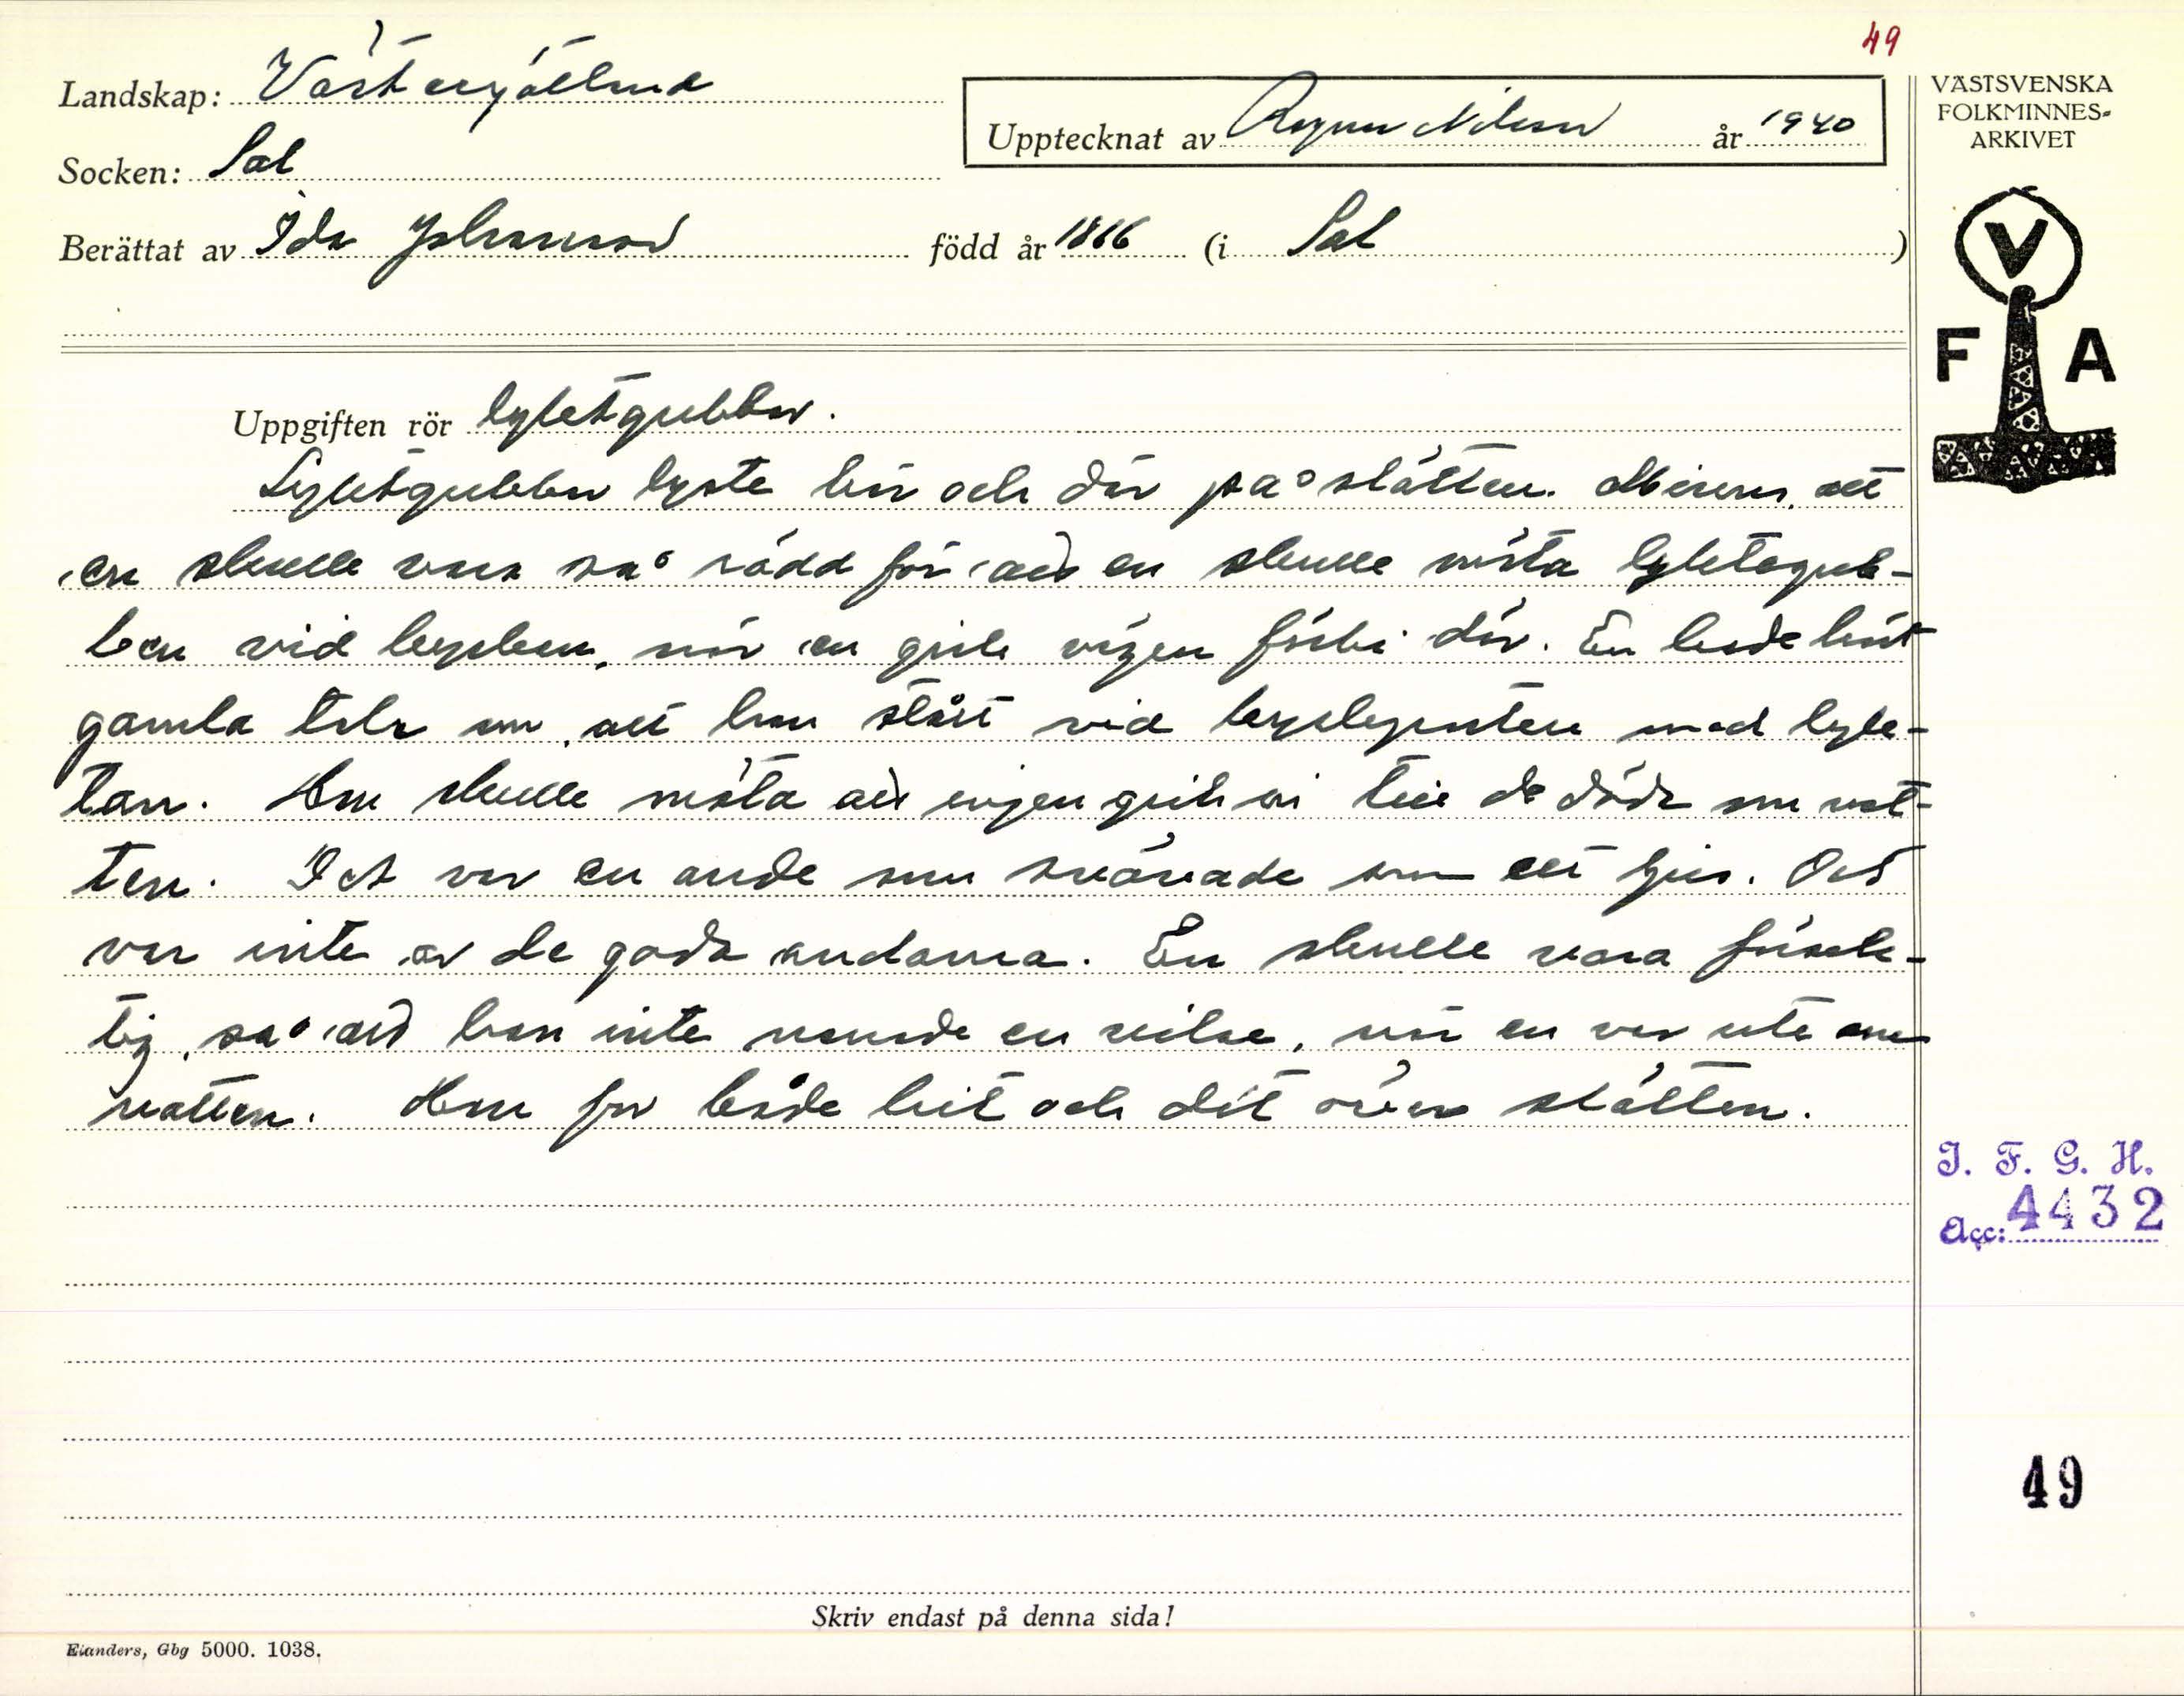 49
Landskap: Västergötland
Upptecknat av Ragnar Nilsson år 1940
VÄSTSVENSKA
FOLKMINNES-
ARKIVET
Socken: Sal
Berättat av Ida Johansson född år 1866 (i Sal )
V
F A
Uppgiften rör lyktgubben.
Lyktgubben lyste här och där på slätten. Minns, att
en skulle vara så rädd för att en skulle möta lyktegub-
ben vid kyrkan, när en gick vägen förbi där. En hade hört
gamla tala om, att han stått vid kyrkeporten med lyk-
tan. Han skulle mota att ingen gick in till de döda om nat-
ten. Det var en ande som svävade som ett ljus. Det
var inte av de goda andarna. En skulle vara försik-
tig, så att han inte narrade en vilse, när en var ute om
natten. Han for både hit och dit över slätten.
I. F. G. H.
Acc: 4432
49
Skriv endast på denna sida!
Elanders, Gbg 5000. 1038.